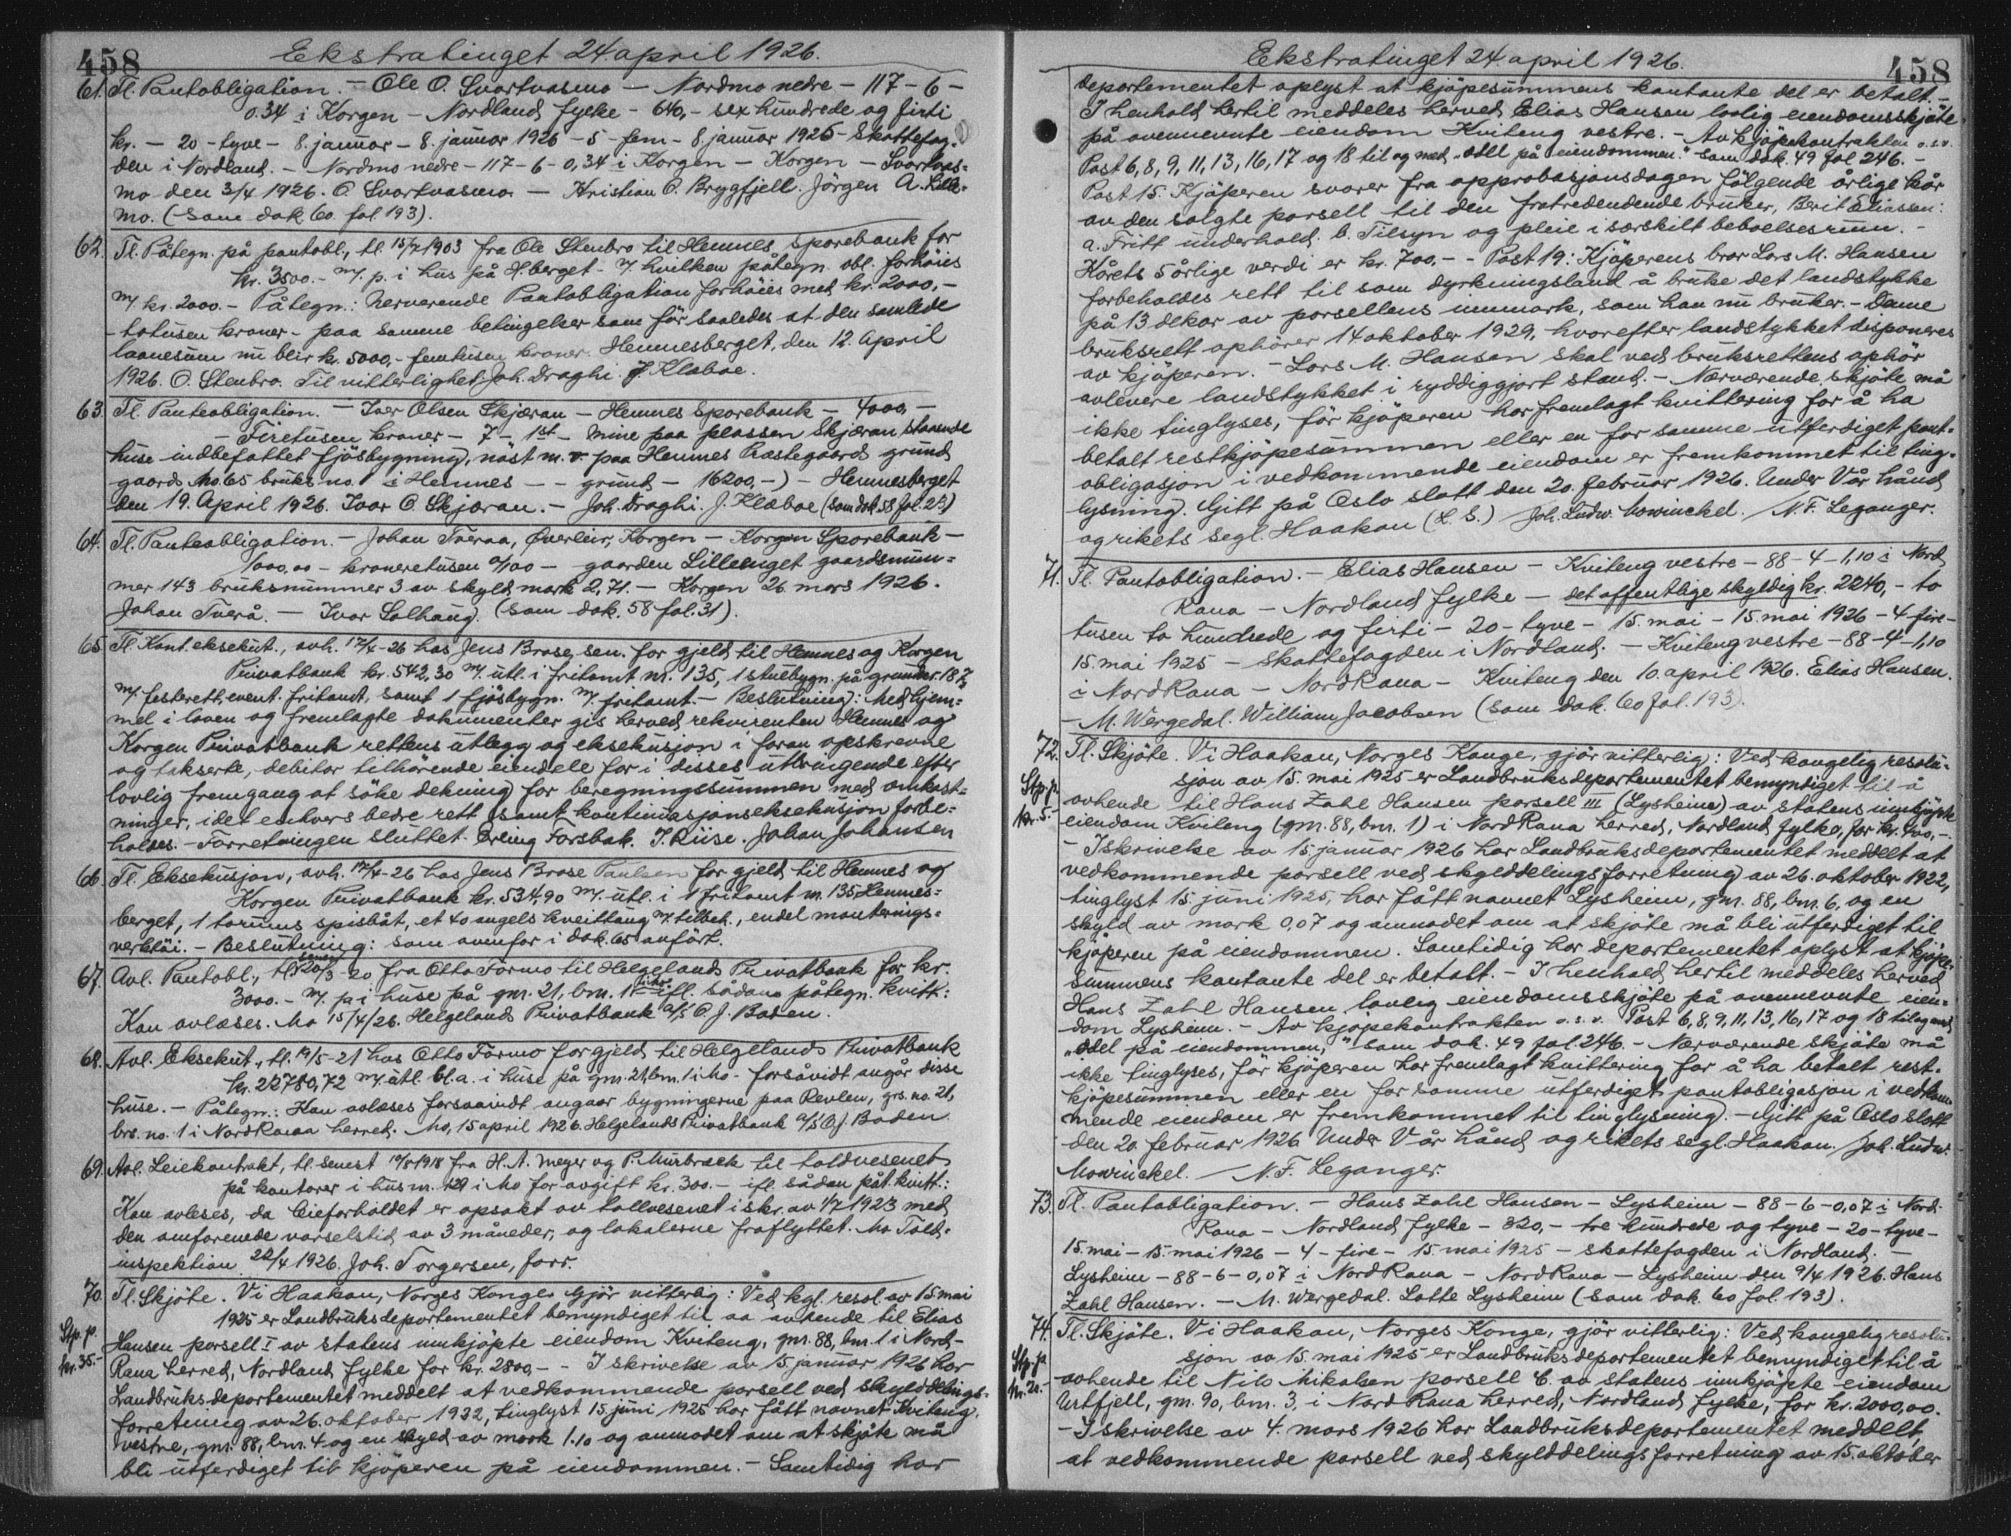 458
Ekstratinget 24 april 1926.
61. Tl. Pantobligation. — Ole O. Svartvasmo — Nordmo nedre — 117 – 6 –
0.34 i Korgen – Nordland fylke – 640,- sex hundrede og firti
kr. — 20 – tyve – 8. januar – 8 januar 1926 – 5 – fem – 8 januar 1925 – Skattefog-
den i Nordland. – Nordmo nedre – 117 – 6 – 0,34 i Korgen – Korgen – Svartvas-
mo den 3/4 1926. O. Svartvasmo. — Kristian O. Brygfjell. Jörgen A. Lille-
mo. (Som dok 60. fol 193).
62. Tl. Påtegn. på pantobl., tl. 15/7 1903 fra Ole Stenbro til Hemnes Sparebank for
kr. 3500.- m/. p. i hus på H.berget – v/ hvilken påtegn. obl. forhöies
m/ kr. 2000.- Påtegn.: Nerværende Pantobligation forhöies med kr. 2000,-
- totusen kroner – paa samme betingelser som för saaledes at den samlede
laanesum nu blir kr. 5000,- femtusen kroner. Hemnesberget, den 12. April
1926. O. Stenbro. Til vitterlighet: Joh. Draghi. J. Klæboe.
63. Tl. Panteobligation. – Iver Olsen Skjæran – Hemnes Sparebank – 4000,-
– Firetusen kroner – 7 – 1st – mine paa plassen Skjæran staaende
huse indbefattet fjösbygning, nöst m.v. paa Hemnes Præstegaards grund
gaards no. 65 bruks no. 1 i Hemnes – – grund – 16200,-) – Hemnesberget
den 19. April 1926. Ivar O. Skjæran. – Joh. Draghi. J. Klæboe (Som dok. 58 fol. 25)
64. Tl. Panteobligation. – Johan Tveraa, Överleir, Korgen – Korgen Sparebank –
1000,00 – kroneretusen 0/00 – gaarden Lillenget gaardsnum-
mer 143 bruksnummer 3 av skyld mark 2,71. – Korgen 26. mars 1926.
Johan Tverå. — Ivar Solhaug. (Som dok. 58 fol. 31).
65. Tl. Kont. eksekut., avh. 17/4-26 hos Jens Brose, sen. for gjeld til Hemnes og Korgen
Privatbank kr. 542,30 m/. utl. i fritomt nr. 135, 1 stuebygn. på grundnr. 187,
m/ festerett, event. fritomt, samt 1 fjösbygn. m/. fritomt. – Beslutning: Med hjem-
mel i loven og fremlagte dokumenter gis herved rekvirenten Hemnes og
Korgen Privatbank rettens utlegg og eksekusjon i foran opskrevne
og takserte, debitor tilhörende eiendele for i disses utbringende efter
lovlig fremgang at söke dekning for beregningssummen med omkost-
ninger, idet enhvers bedre rett samt kontinuasjonseksekusjon forbe-
holdes. – Forretningen sluttet. Erling Forsbak. J. Riise. Johan Johansen
66. Tl. Eksekusjon, avh. 17/4-26 hos Jens Brose Paulsen for gjeld til Hemnes og
Korgen Privatbank kr. 534,90 m/. utl. i 1 fritomt nr. 135 Hemnes-
berget, 1 torums spisbåt, et 40 angels kveitvang m/ tilbeh., endel monterings-
verktöi. – Beslutning: som ovenfor i dok. 65 anfört.
67. Avl. Pantobl., tl. senest 20/3-20 fra Otto Formo til Helgelands Privatbank for kr.
3000.- m/. p. i huse på gnr. 21, bnr. 1 i Mo ifl. sådan påtegn. kvitt:
Kan avlæses. Mo 15/4/26. Helgelands Privatbank A/S O. J. Baden.
68. Avl. Eksekut., tl. 19/5-21 hos Otto Formo for gjeld til Helgelands Privatbank
kr. 22780,72 m/ utl. bl. a. i huse på gnr. 21, bnr. 1 i Mo – forsåvidt angår disse
huse. – Påtegn.: Kan avlæses forsaavidt angaar bygningerne paa Revlen, grs. no. 21,
brs. no. 1 i Nord Rana herred. Mo, 15 april 1926. Helgelands Privatbank A/S O. J. Baden
69. Avl. Leiekontrakt, tl. senest 10/5 1918 fra H. A. Meyer og P. Murbræck til toldvesenet
på kontorer i hus nr. 129 i Mo for avgift kr. 300.- ifl. sådan påt. kvitt.:
Kan avleses, da leieforholdet er opsakt av tollvesenet i skr. av 1/7 1923 med
den omforenede varselstid av 3 måneder, og lokalerne fraflyttet. Mo Told-
inspektion 22/4 1926. Joh. Torgersen, forr.
70. Tl. Skjöte. Vi Haakon, Norges Konge gjör vitterlig: Ved kgl. resol. av 15 mai
1925 er Landbruksdepartementet bemyndiget til aa avhende til Elias
Stp. p.
kr. 35.-
Hansen parsell I av statens innkjöpte eiendom Kviteng, gnr. 88, bnr. 1 i Nord-
Rana herred, Nordland fylke for kr. 2800,- – I skrivelse av 15. januar 1926 har
Landbruksdepartementet meddelt at vedkommende parsell ved skylddelings-
forretning av 26. oktober 1922, tinglyst 15 juni 1925 har fått navnet Kviteng
vestre, gnr. 88, bnr. 4 og en skyld av mark 1.10 og anmodet om at skjöte må
bli utferdiget til kjöperen på eiendommen. – Samtidig har
458
Ekstratinget 24 april 1926.
departementet oplyst at kjöpesummens kontante del er betalt. –
I henhold hertil meddeles herved Elias Hansen lovlig eiendomsskjöte
på ovennevnte eiendom Kviteng vestre. – Av kjöpekontrakten o.s.v.
Post 6, 8, 9, 11, 13, 16, 17 og 18 til og med „odel på eiendommen." som dok. 49 fol 246. –
Post 15. Kjöperen svarer fra approbasjonsdagen fölgende årlige kår
av den solgte parsell til den fratredendende bruker, Berit Eliassen:
a. Fritt underhold. b. Tilsyn og pleie i særskilt beboelsesrum. –
Kårets 5 årlige verdi er kr. 700.- – Post 19: Kjöperens bror Lars M. Hansen
forbeholdes rett til som dyrkningsland å bruke det landstykke
på 13 dekar av parsellens innmark, som han nu bruker. – Denne
bruksrett ophörer 14 oktober 1929, hvorefter landstykket disponeres
av kjöperen. – Lars M. Hansen skal ved bruksrettens ophör
avlevere landstykket i ryddiggjort stand. – Nærværende skjöte må
ikke tinglyses, för kjöperen har fremlagt kvittering for å ha
betalt restkjöpesummen eller en for samme utferdiget pant-
obligasjon i vedkommende eiendom er fremkommet til ting-
lysning. Gitt på Oslo slott den 20. februar 1926. Under Vår hånd
og rikets segl. Haakon (L. S.) Joh. Ludw. Mowinckel. / N. F. Leganger.
71. Tl. Pantobligation. – Elias Hansen – Kviteng vestre – 88 – 4 – 1,10 i Nord
Rana – Nordland fylke – det offentlige skyldig kr. 2240,- to
tusen to hundrede og firti – 20 – tyve – 15. mai – 15. mai 1926 – 4 – fire –
15. mai 1925 – skattefogden i Nordland. – Kviteng vestre – 88 – 4 – 1,10
i Nord Rana – Nord Rana – Kviteng den 10. april 1926. Elias Hansen.
– M. Wergedal. William Jacobsen (Som dok. 60 fol. 193).
72. Tl. Skjöte. Vi Haakon, Norges Konge, gjör vitterlig: Ved kongelig resolu-
sjon av 15. mai 1925 er Landbruksdepartementet bemyndiget til å
Stp. p.
kr. 5.-
avhende til Hans Zahl Hansen parsell III (Lysheim) av statens innkjöpte
eiendom Kviteng (gnr. 88, bnr. 1) i Nord Rana herred, Nordland fylke, for kr. 400,-.
– I skrivelse av 15. januar 1926 har Landbruksdepartementet meddelt at
vedkommende parsell ved skylddelingsforretning av 26. oktober 1922,
tinglyst 15. juni 1925, har fått navnet Lysheim, gnr. 88, bnr. 6, og en
skyld av mark 0,07 og anmodet om at skjöte må bli utferdiget til
kjöperen på eiendommen. Samtidig har departementet oplyst at kjöpe-
summens kontante del er betalt. – I henhold hertil meddeles herved
Hans Zahl Hansen lovlig eiendomsskjöte på ovennevnte eien-
dom Lysheim. – Av kjöpekontrakten o.s.v. Post 6, 8, 9, 11, 13, 16, 17 og 18 til og med
„odel på eiendommen," som dok. 49 fol. 246. – Nærværende skjöte må
ikke tinglyses, för kjöperen har fremlagt kvittering for å ha betalt rest-
kjöpesummen eller en for samme utferdiget pantobligasjon i vedkom-
mende eiendom er fremkommet til tinglysning. – Gitt på Oslo slott
den 20. februar 1926 Under Vår hånd og rikets segl. Haakon. Joh. Ludw.
Mowinckel. — N. F. Leganger.
73. Tl. Pantobligation. – Hans Zahl Hansen – Lysheim – 88 – 6 – 0,07 i Nord-
Rana – Nordland fylke – 320,- tre hundrede og tyve – 20 – tyve –
15. mai – 15. mai 1926 – 4 – fire – 15 mai 1925 – skattefogden i Nordland. –
Lysheim – 88 – 6 – 0,07 i Nord Rana – Nord Rana – Lysheim den 9/4 1926. Hans
Zahl Hansen. – M. Wergedal. Lotte Lysheim (Som dok. 60 fol. 193).
74. Tl. Skjöte. Vi Haakon, Norges Konge, gjör vitterlig: Ved kongelig resolu-
sjon av 15. mai 1925 er Landbruksdepartementet bemyndiget til å
Stp. p.
kr. 20.-
avhende til Nils Mikalsen parsell C. av statens innkjöpte eiendom
Urtfjell, gnr. 90, bnr. 3, i Nord Rana herred, Nordland fylke, for kr. 2000,00.
– I skrivelse av 4. mars 1926 har Landbruksdepartementet meddelt,
at vedkommende parsell ved skylddelingsforretning av 15. oktober